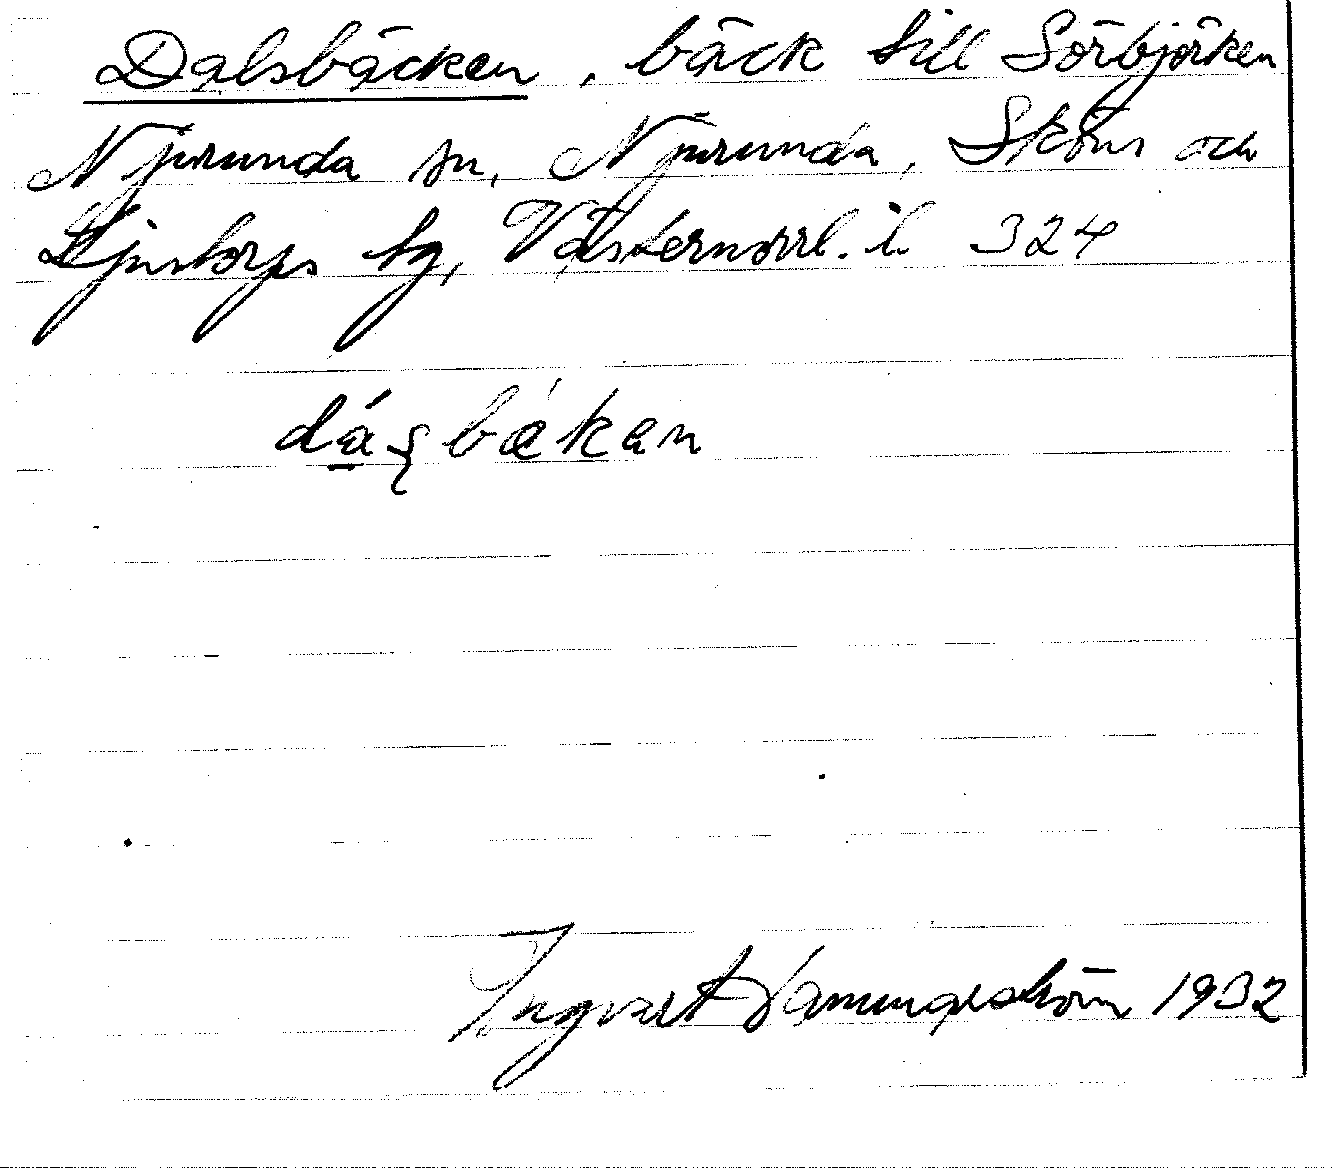 Dalsbäcken, bäck till Sörbjörken
Njurunda sn, Njurunda, Sköns och
Ljustorps tg, Västernorrl. l. 324
dá̱ʂbäken
Ingvar Hammarström 1932